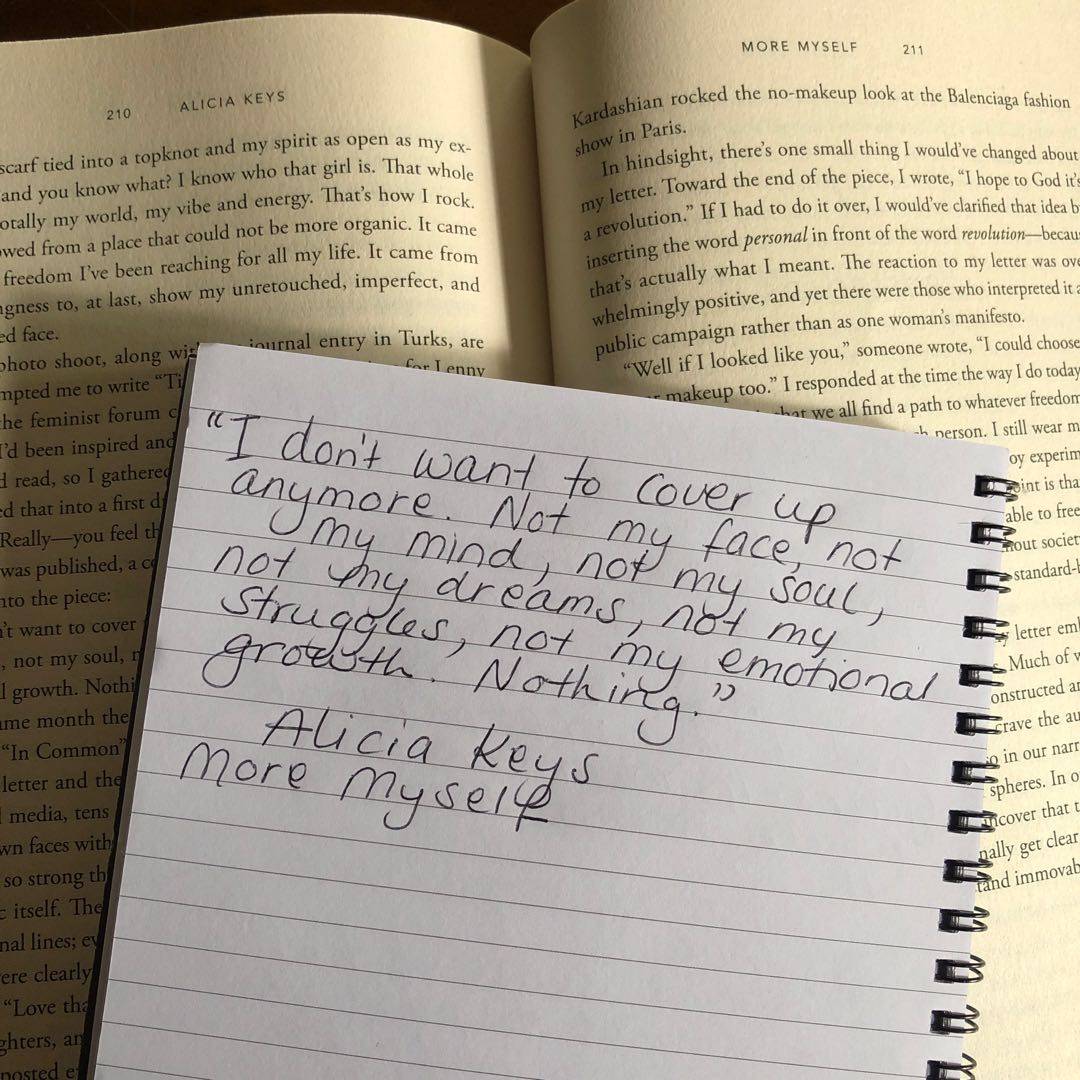 210 ALICIA KEYS
scarf tied into a topknot and my spirit as open as my ex-
and you know what? I know who that girl is. That whole
my world, my vibe and energy. That's how I rock.
from a place that could not be more organic. It came
freedom I've been reaching for all my life. It came from
to, at last, show my unretouched, imperfect, and
face.
photo shoot, along journal entry in Turks, are
me to write for Lenny
the feminist forum
I'd been inspired and
read, so I gathered
that into a first
Really—you feel
was published, a
into the piece:
want to cover
not my soul,
growth.
month the
"In Common"
letter and the
media, tens
faces with
so strong
itself. The
lines;
clearly
"Love
posted
MORE MYSELF 211
Kardashian rocked the no-makeup look at the Balenciaga fashion
show in Paris.
In hindsight, there's one small thing I would've changed about
my letter. Toward the end of the piece, I wrote, "I hope to God it's
a revolution." If I had to do it over, I would've clarified that idea by
inserting the word personal in front of the word revolution—
that's actually what I meant. The reaction to my letter was
whelmingly positive, and yet there were those who interpreted it
public campaign rather than as one woman's manifesto.
"Well if I looked like you," someone wrote, "I could choose
makeup too." I responded at the time the way I do today
that we all find a path to whatever freedom
person. I still wear
point is
able to
society
letter
Much of
constructed
crave the
in our
spheres. In
uncover that
get clear
and
"I don't want to cover up
anymore. Not my face, not
my mind, not my soul,
not my dreams, not my
struggles, not my emotional
growth. Nothing."
Alicia Keys
More Myself